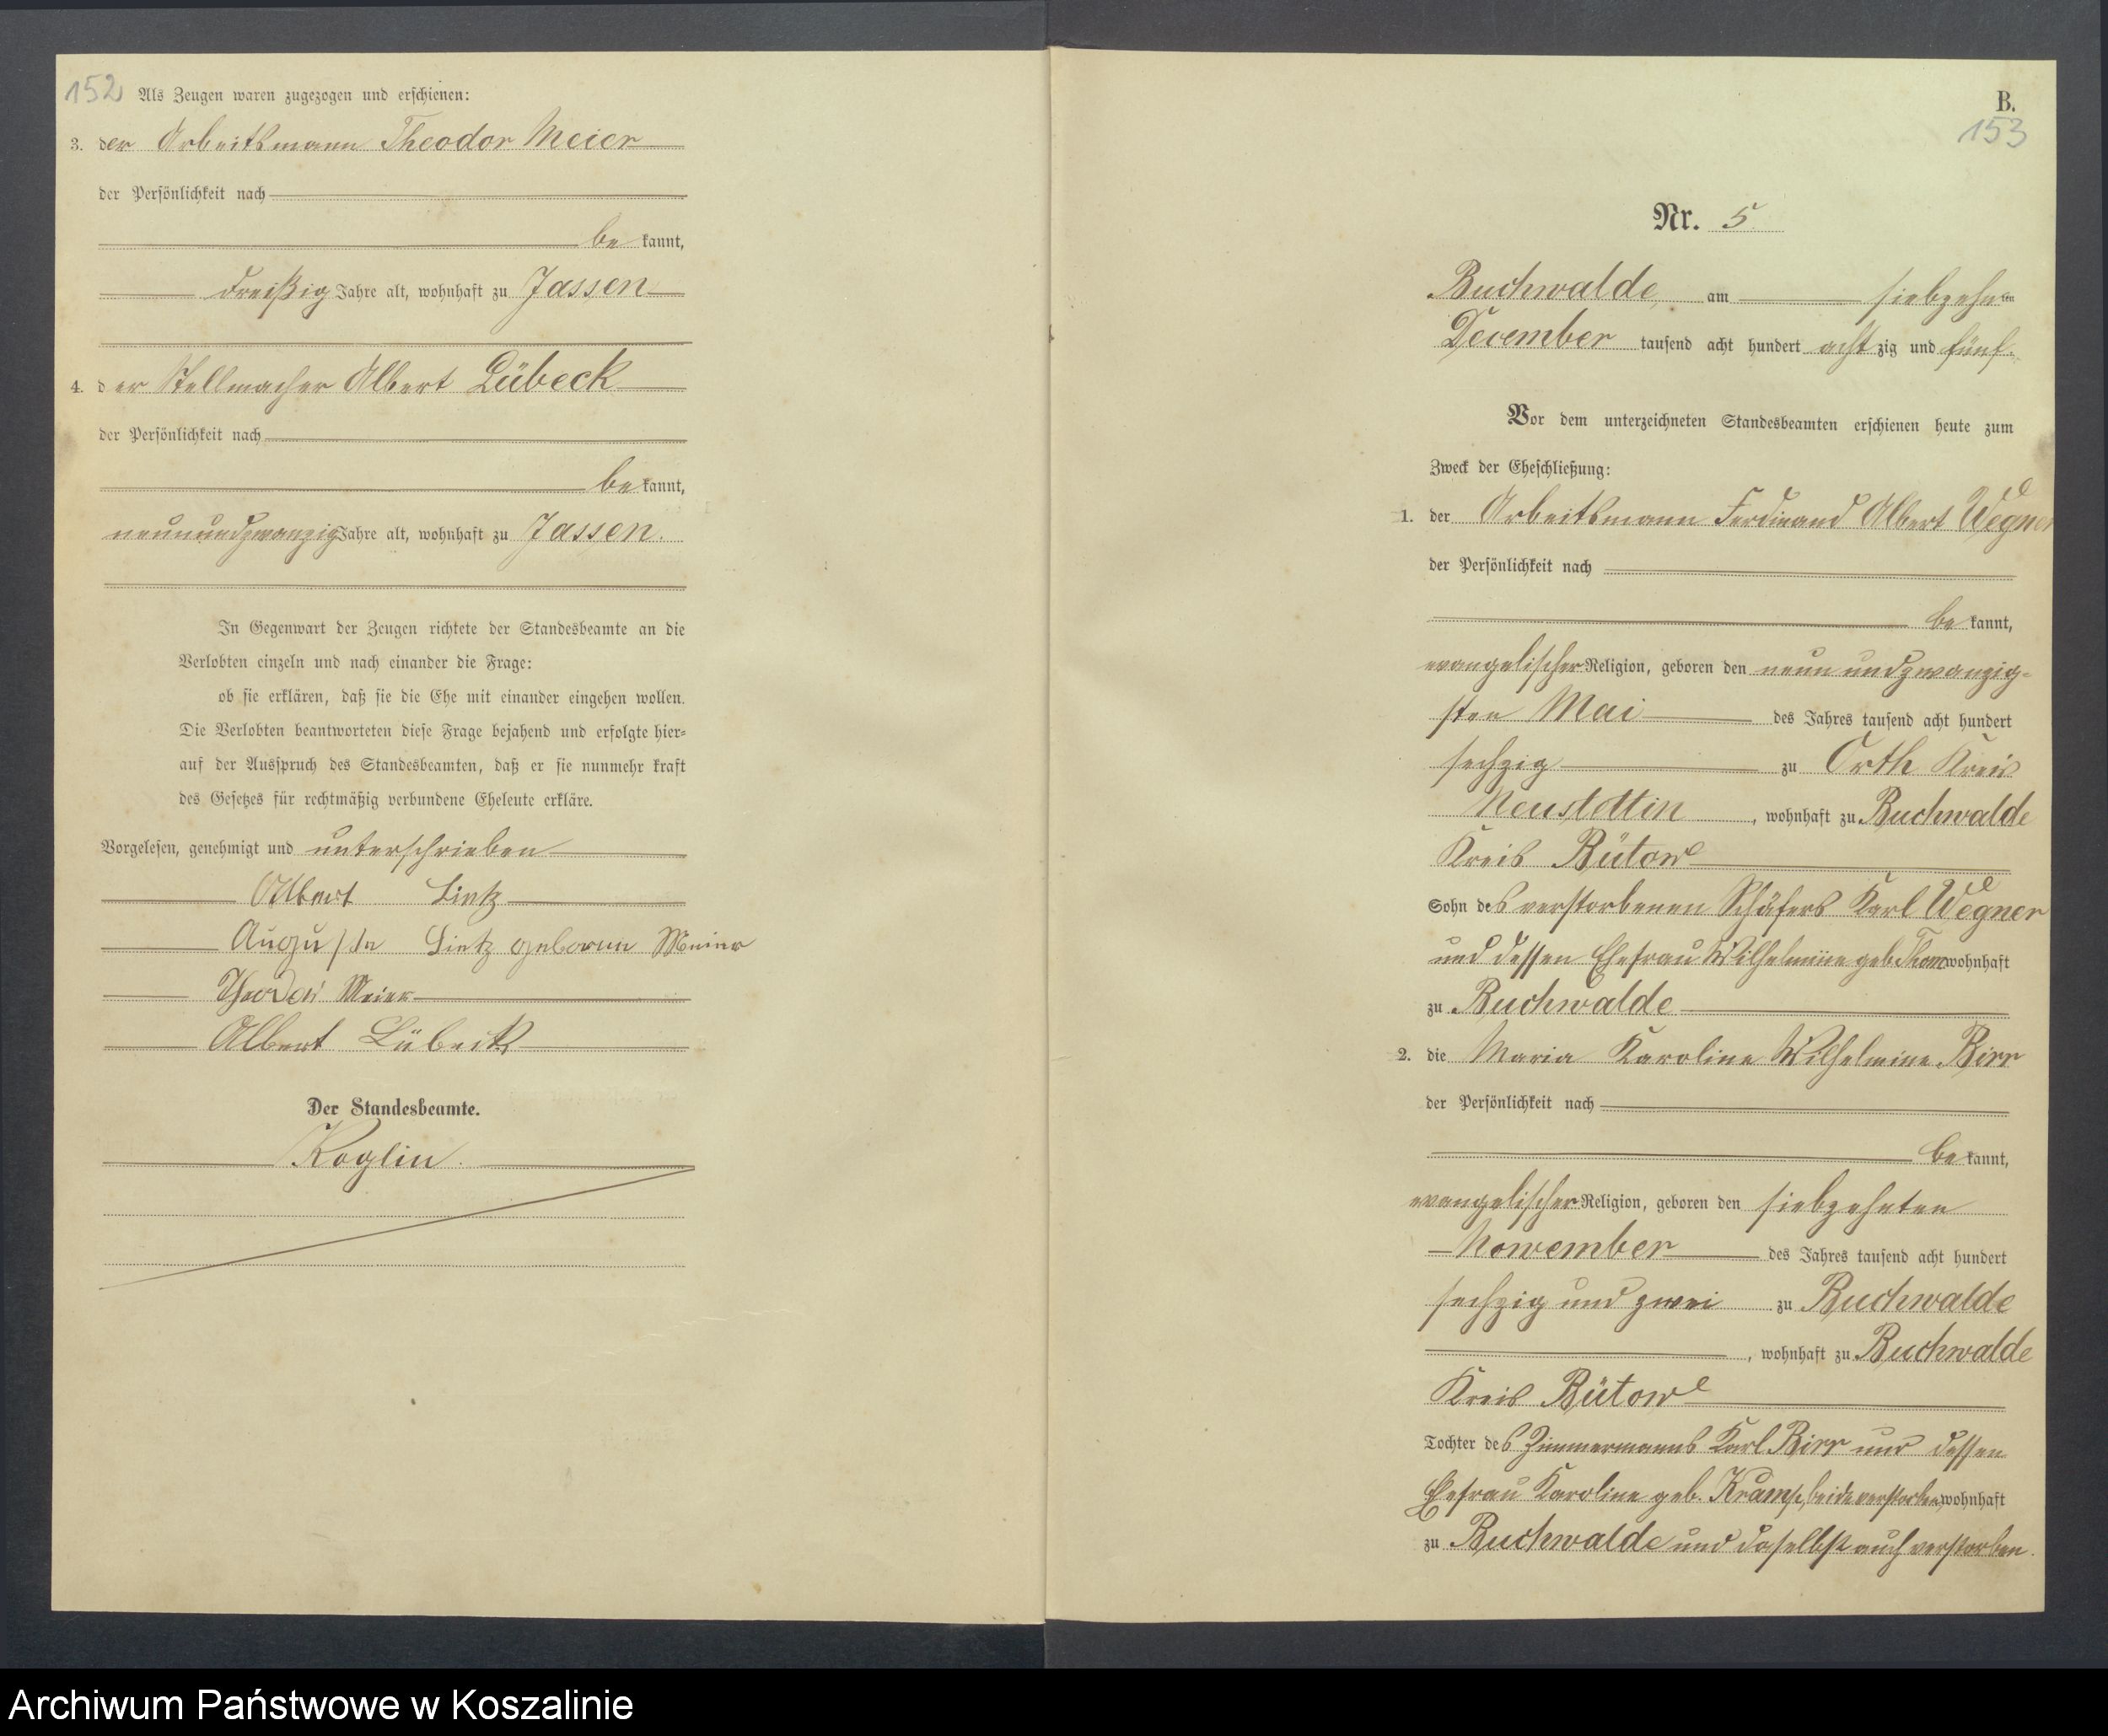 152
Als Zeugen waren zugezogen und erschienen:
3. der Arbeitsmann Theodor Meier
der Persönlichkeit nach
bekannt,
dreißig Jahre alt, wohnhaft zu Jassen
4. der Stellmacher Albert Lübeck
der Persönlichkeit nach
bekannt,
neunundzwanzig Jahre alt, wohnhaft zu Jassen.
In Gegenwart der Zeugen richtete der Standesbeamte an die
Verlobten einzeln und nach einander die Frage:
ob sie erklären, daß sie die Ehe mit einander eingehen wollen.
Die Verlobten beantworteten diese Frage bejahend und erfolgte hier-
auf der Ausspruch des Standesbeamten, daß er sie nunmehr kraft
des Gesetzes für rechtmäßig verbundene Eheleute erkläre.
Vorgelesen, genehmigt und unterschrieben
Albert Lietz
Auguste Lietz geboren Meier
Theodor Meier
Albert Lübeck
Der Standesbeamte.
Koglin.
B.
153
Nr. 5
Buchwalde am siebzehnten
December tausend acht hundert achtzig und fünf.
Vor dem unterzeichneten Standesbeamten erschienen heute zum
Zweck der Eheschließung:
1. der Arbeitsmann Ferdinand Albert Wegner
der Persönlichkeit nach
bekannt,
evangelischer Religion, geboren den neun und zwanzig-
sten Mai des Jahres tausend acht hundert
sechzig zu Orth Kreis
Neustettin, wohnhaft zu Buchwalde
Kreis Bütow
Sohn des verstorbenen Schäfers Karl Wegner
und dessen Ehefrau Wilhelmine geb. wohnhaft
zu Buchwalde
2. die Maria Karoline Wilhelmine Birr
der Persönlichkeit nach
bekannt,
evangelischer Religion, geboren den siebzehnten
November des Jahres tausend acht hundert
sechzig und zwei zu Buchwalde
, wohnhaft zu Buchwalde
Kreis Bütow
Tochter des Zimmermanns Karl Birr und dessen
Ehefrau Karoline geb. beide verstorben, wohnhaft
zu Buchwalde und daselbst auch verstorben.
Archiwum Państwowe w Koszalinie